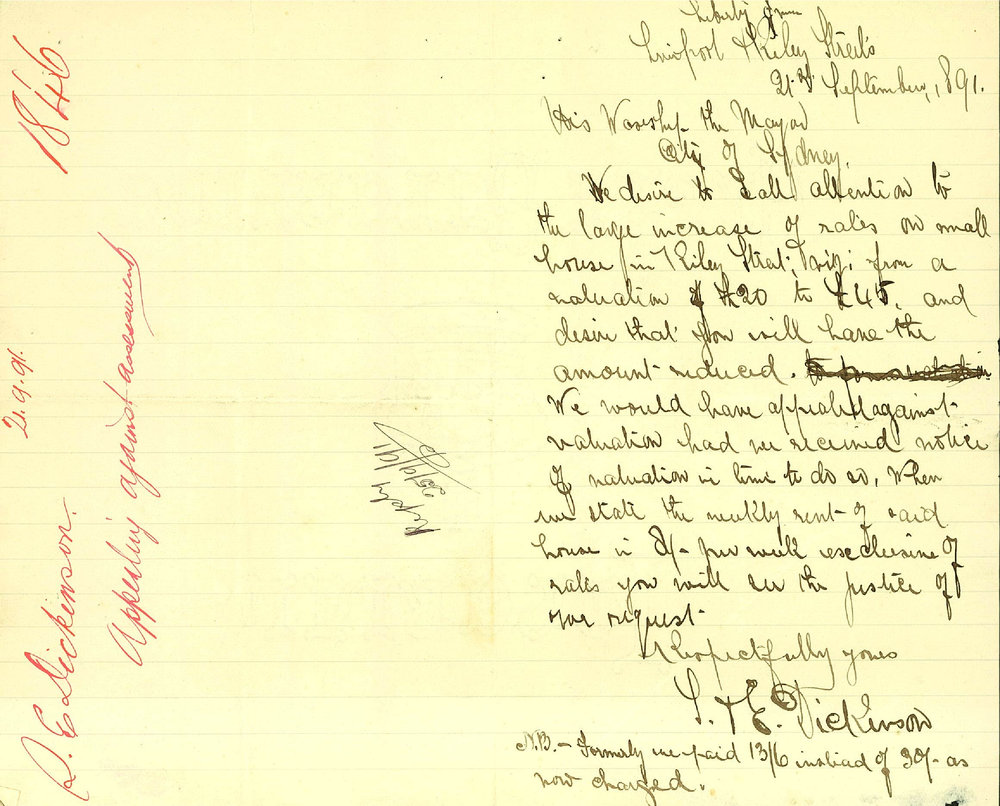 Liberty Inn
Liverpool & Riley Streets
21st September, 1891.
His Worship the Mayor
City of Sydney.
We desire to call attention to
the large increase of rates on small
house in Riley Street, viz; from a
valuation of £20 to £45, and
desire that you will have the
amount reduced.
We would have appealed against
valuation had we received notice
of valuation in time to do so, When
we state the weekly rent of said
house is 8/- per week exclusive of
rates you will see the justice of
our request
Respectfully yours
S. & E. Dickinson
N.B. - Formerly we paid 13/6 instead of 30/- as
now charged.
Reply
25/9/91
1846
21.9.91.
S. E Dickinson.
Appealing against assessment